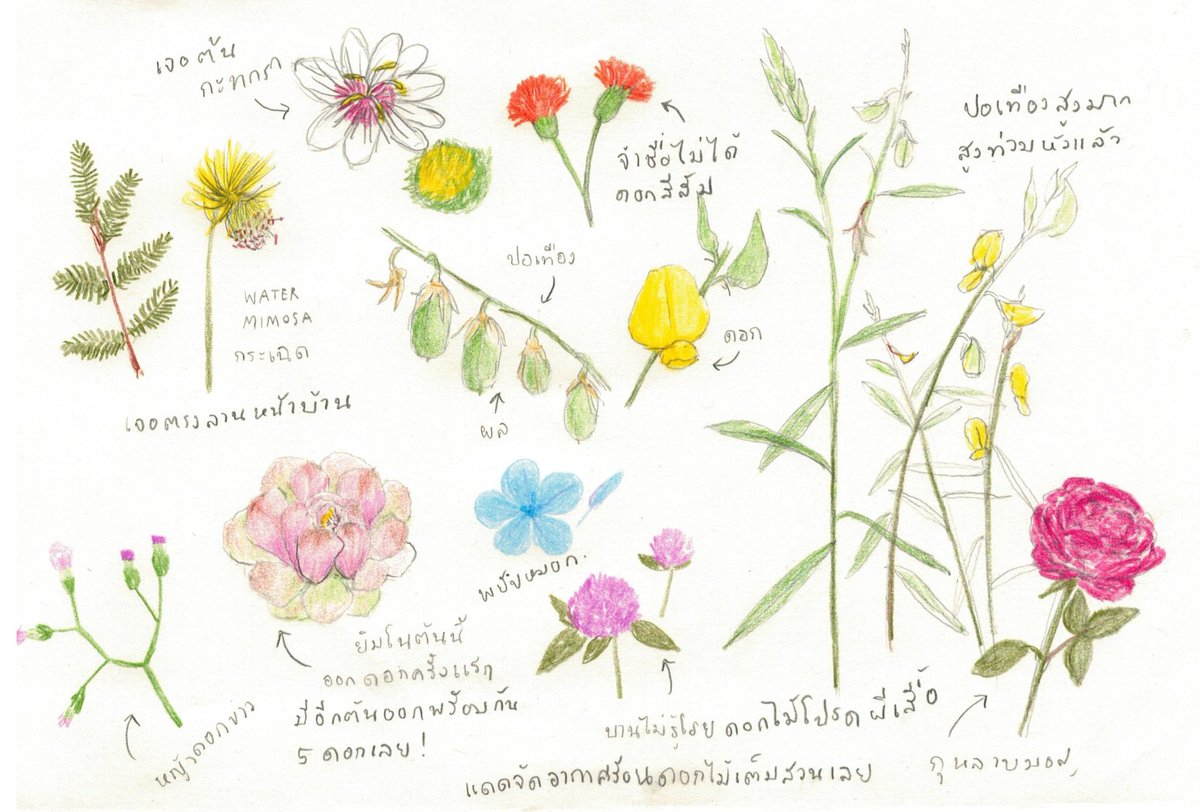 เจอต้น
กะทกรก
จำชื่อไม่ได้
ดอกสีส้ม
ปอเทืองสูงมาก
สูงท่วมหัวแล้ว
ปอเทือง
ดอก
ผล
WATER
MIMOSA
กระเฉด
เจอตรงลานหน้าบ้าน
พยับหมอก
ยิมโนต้นนี้
ออกดอกครั้งแรก
มีอีกต้นออกพร้อมกัน
5 ดอกเลย!
หญ้าดอกขาว
บานไม่รู้โรย ดอกไม้โปรดผีเสื้อ
แดดจัด อากาศร้อน ดอกไม้เต็มสวนเลย
กุหลาบมอญ